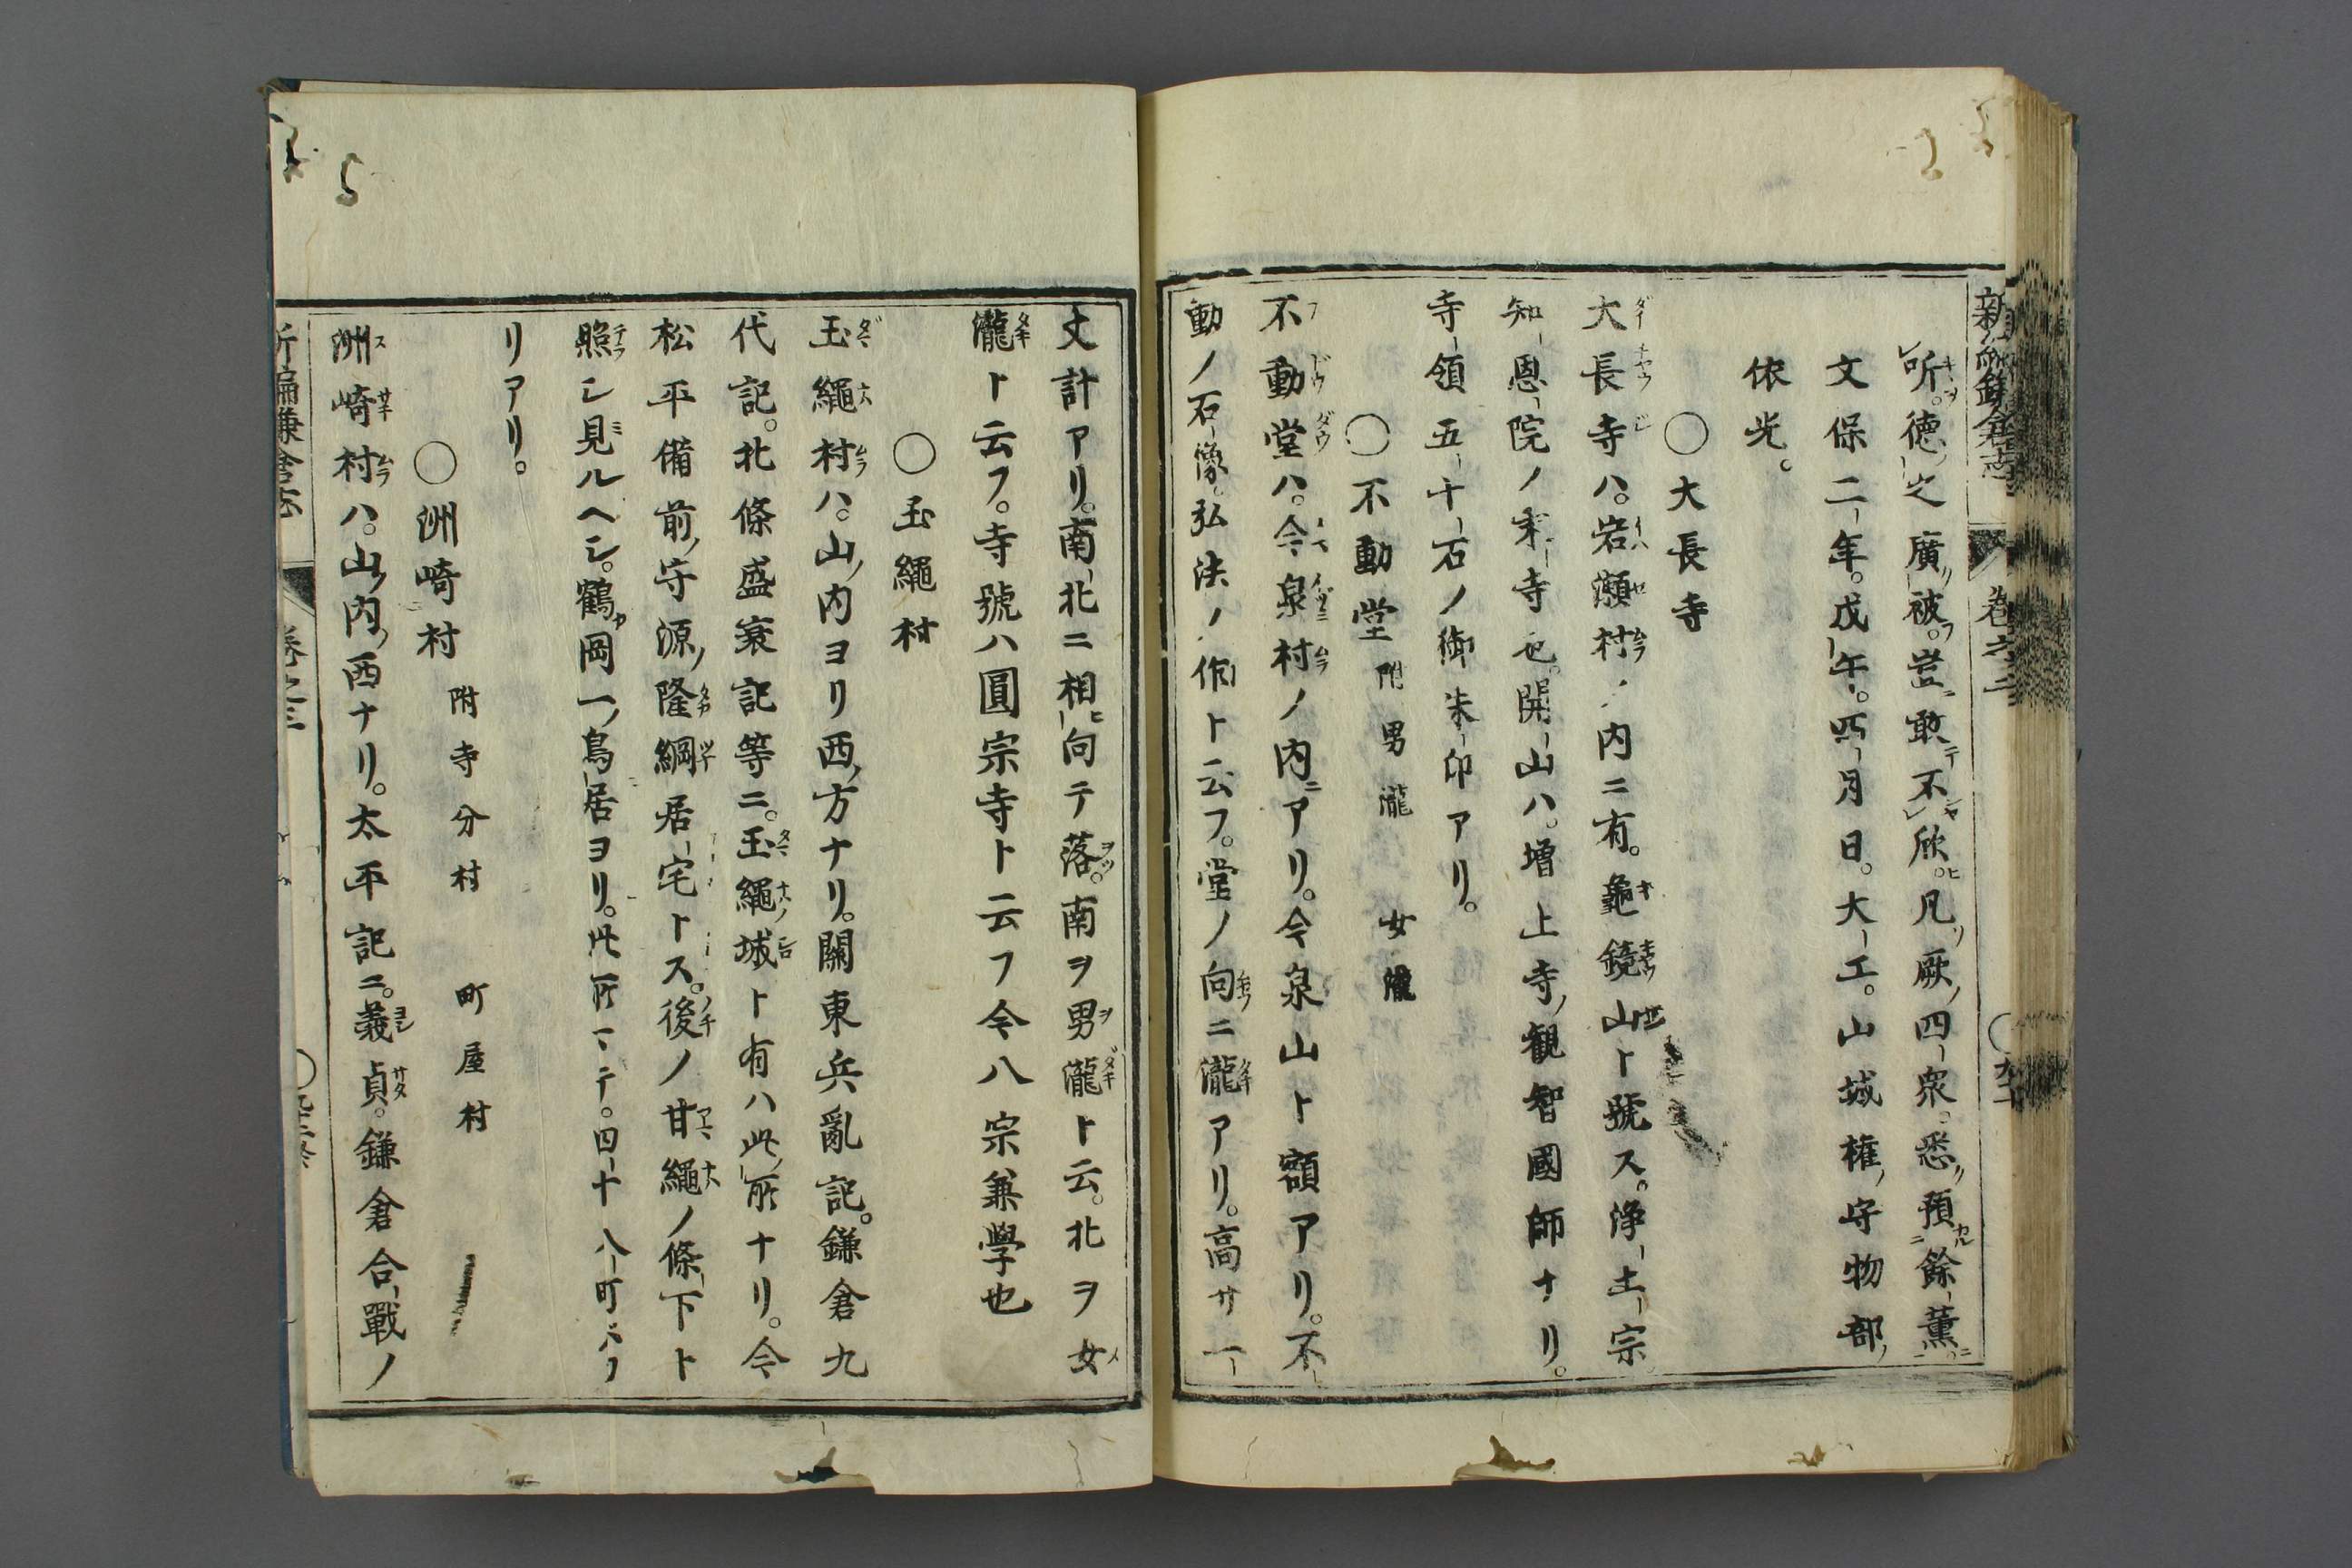 新編鎌倉志 卷之三
所。德之廣被。豈敢不欣。凡厥四衆。悉預餘薰。
文保二年。戊午。四月日。大工。山城權守物部
依光。
○大長寺
大長寺ハ。岩瀬村ノ内ニ有。龜鏡山ト號ス。淨土宗。
知恩院ノ末寺也。開山ハ。增上寺觀智國師ナリ。
寺領五十石ノ御朱印アリ。
○不動堂 附男瀧 女瀧
不動堂ハ。今泉村ノ内ニアリ。今泉山ト額アリ。不
動ノ石像。弘法ノ作ト云フ。堂ノ向ニ瀧アリ。高サ一
丈計アリ。南北ニ相向テ落。南ヲ男瀧ト云。北ヲ女
瀧ト云フ。寺號ハ圓宗寺ト云フ今八宗兼學也
○玉繩村
玉繩村ハ。山内ヨリ西方ナリ。關東兵亂記。鎌倉九
代記。北條盛衰記等ニ。玉繩城ト有ハ此所ナリ。今
松平備前守源隆綱居宅トス。後ノ甘繩ノ條下ト
照シ見ルヘシ。鶴岡一鳥居ヨリ。此所マテ。四十八町バカ
リアリ。
○洲崎村 附寺分村 町屋村
洲崎村ハ。山内西ナリ。太平記ニ。義貞。鎌倉合戰ノ
新編鎌倉志 卷之三